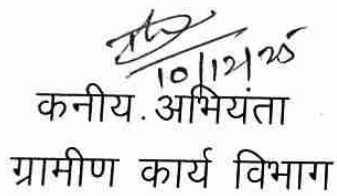 10/12/25
कनीय. अभियंता
ग्रामीण कार्य विभाग